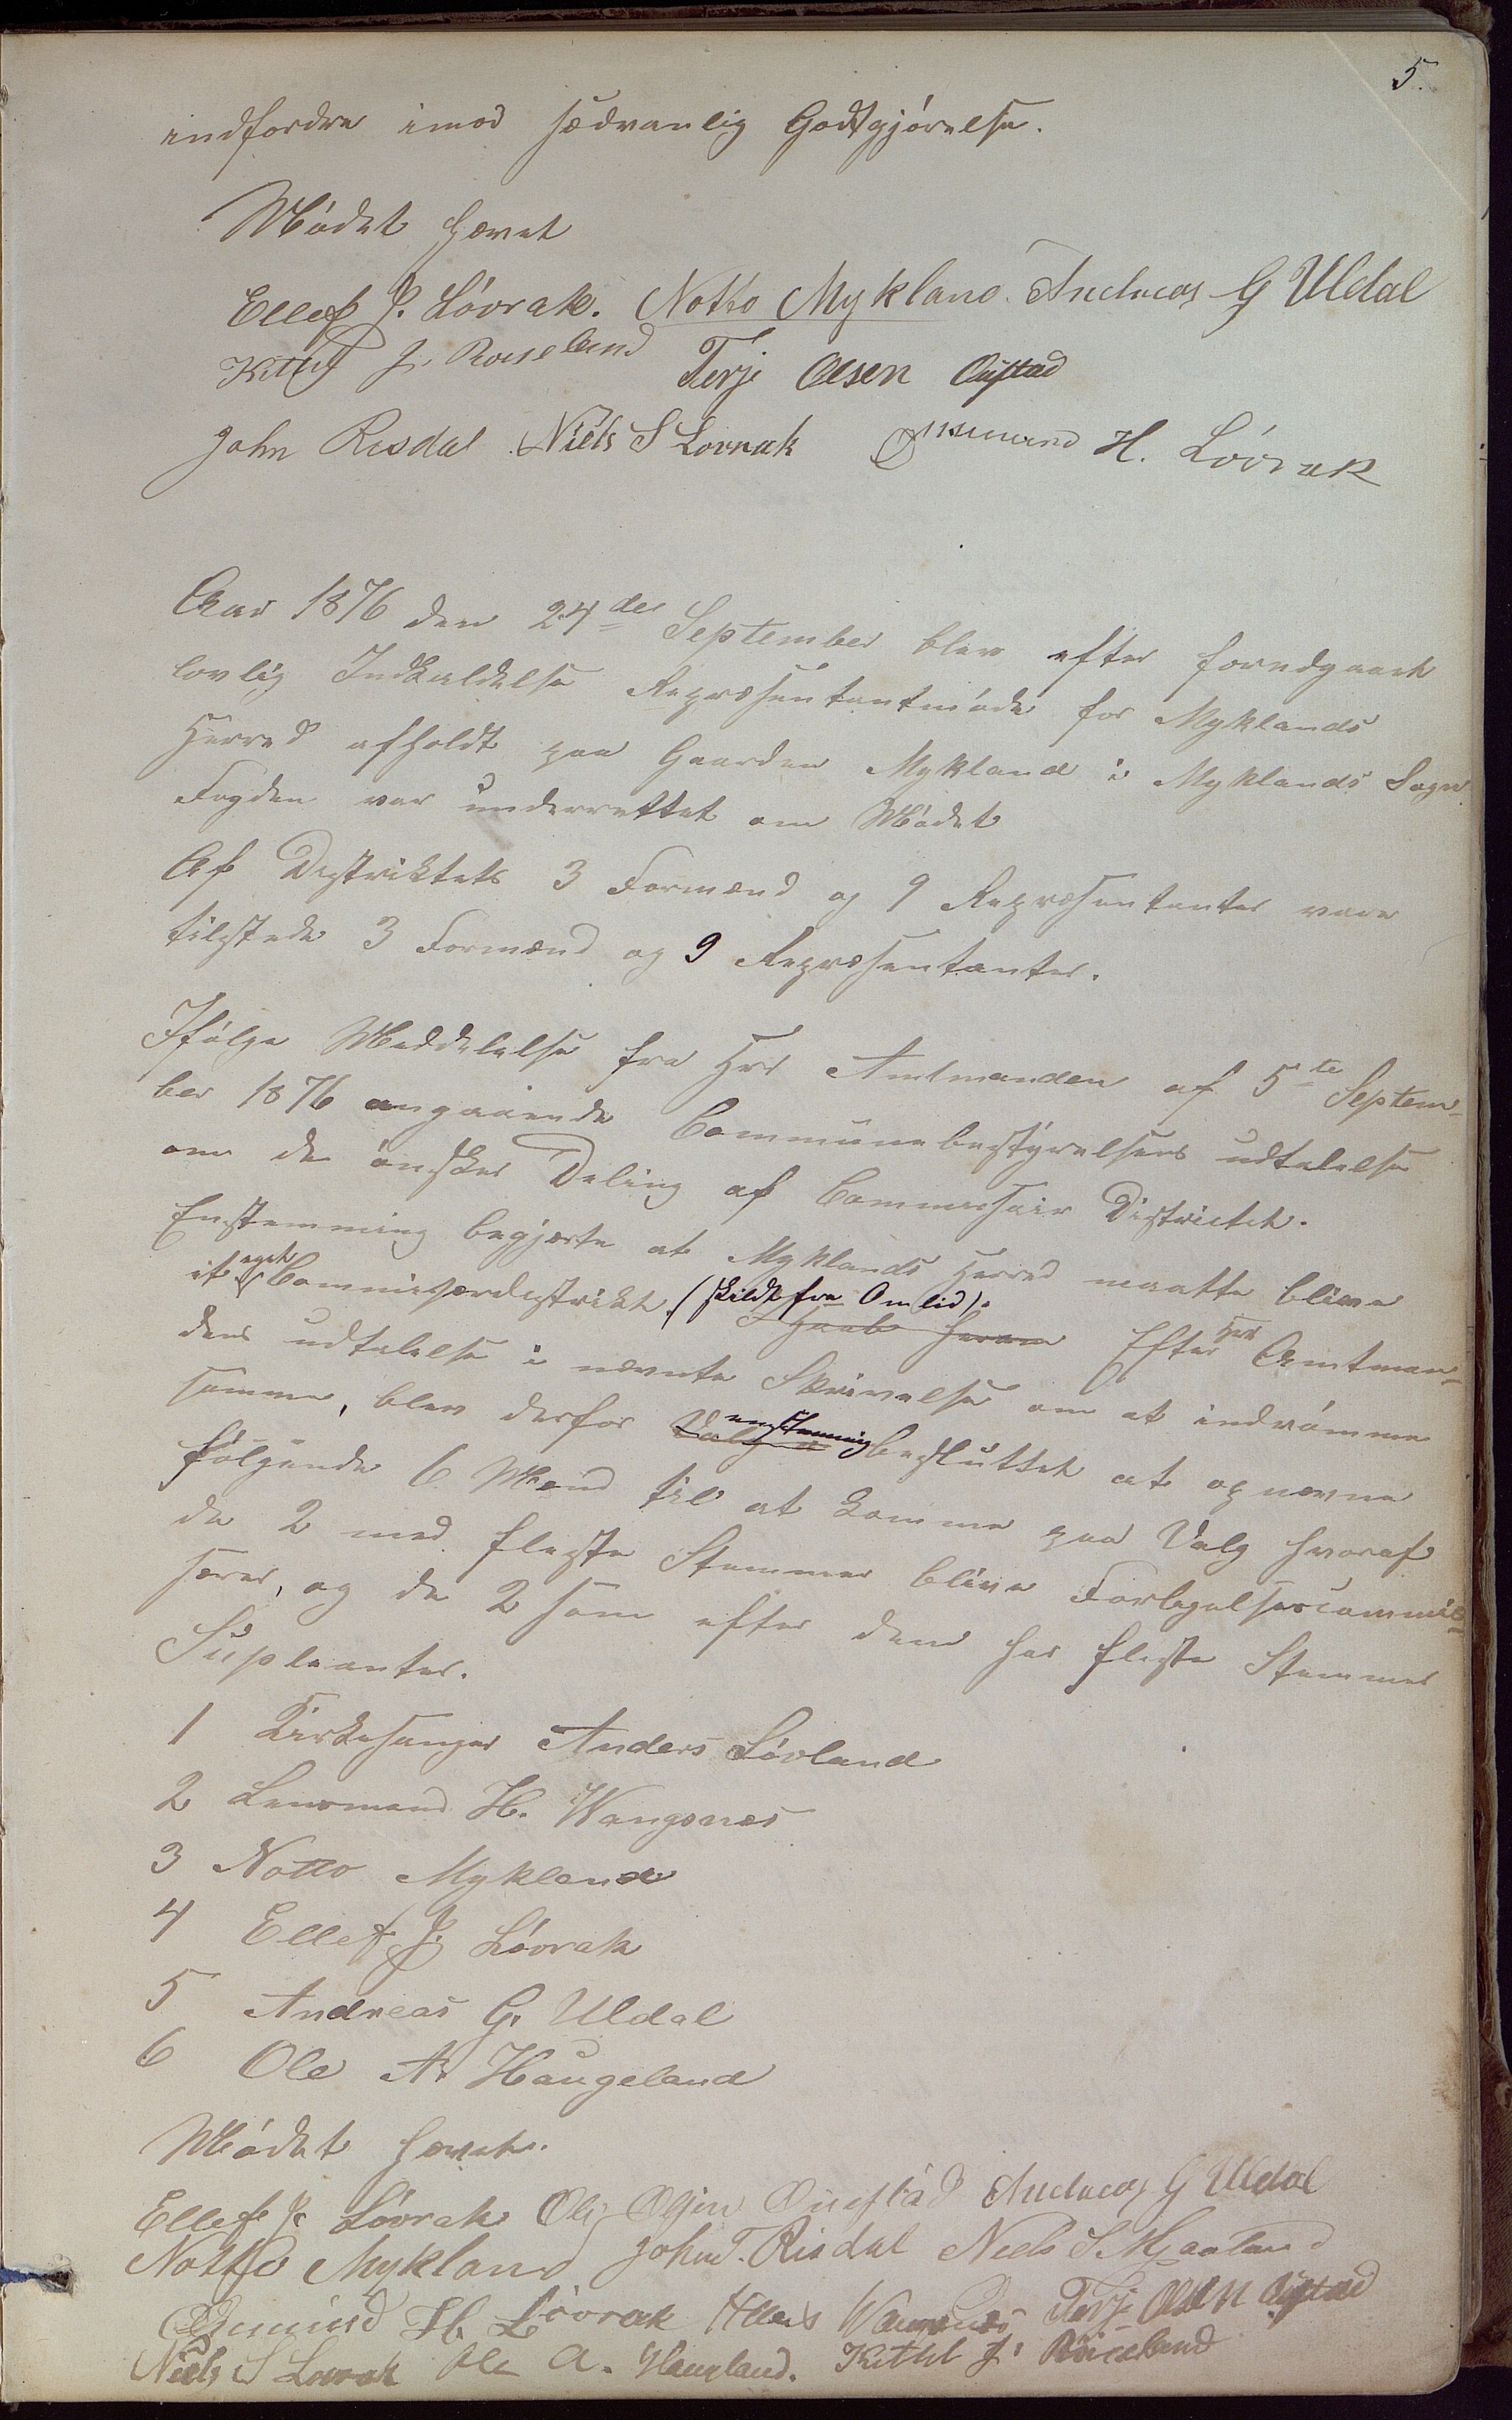 5.
indfordre imod sædvanlig Godtgjørelse.
Mødet hævet
Ellef J. Løvrak. Notto Mykland. Andreas G Uldal
Kittel J. Roiseland Terje Olsen Øistad
John Risdal Niels S Lovrak Osmund H. Løvrak
Aar 1876 den 24de September blev efter foredgaaet
lovlig Indkaldelse Repræsentantmøde for Myklands
Herred afholdt paa Gaarden Mykland i Myklands Sogn
Fogden var underrettet om Mødet
Af Distriktets 3 Formænd og 9 Repræsentanter vare
tilstede 3 Formænd og 9 Repræsentanter.
Ifølge Meddelelse fra Hrr Amtmanden af 5te Septem-
ber 1876 angaaende Communebestyrelsens udtalelse
om de ønsker Deling af Commissair Districtet.
Enstemmig begjærte at Myklands Herred maatte blive
it eget Commissærdistrikt (skildt fra Omlid). Haab herom Efter Hrr Amtman-
dens udtalelse i nævnte Skrivelse om at indrømme
samme, blev derfor enstemmig besluttet at opnævne
følgende 6 Mænd til at komme paa Valg hvoraf
de 2 med fleste Stemmer blive Forligelsescommis-
særer, og de 2 som efter dem har fleste Stemmer
Supleanter.
1 Kirkesanger Anders Løvland
2 Lensmand H. Wangsnes
3 Notto Mykland
4 Ellef J. Løvrak
5 Andreas G. Uldal
6 Ole A. Haugeland
Mødet hævet.
Ellef J. Løvrak Ole Olsen Andreas G Uldal
Notto Mykland John T. Risdal Niels S
Osmund H. Løvrak Wangsnes Terje Olsen Øistad
Niels S Lovrak Ole A. Haugland. Kittel J. Roiseland